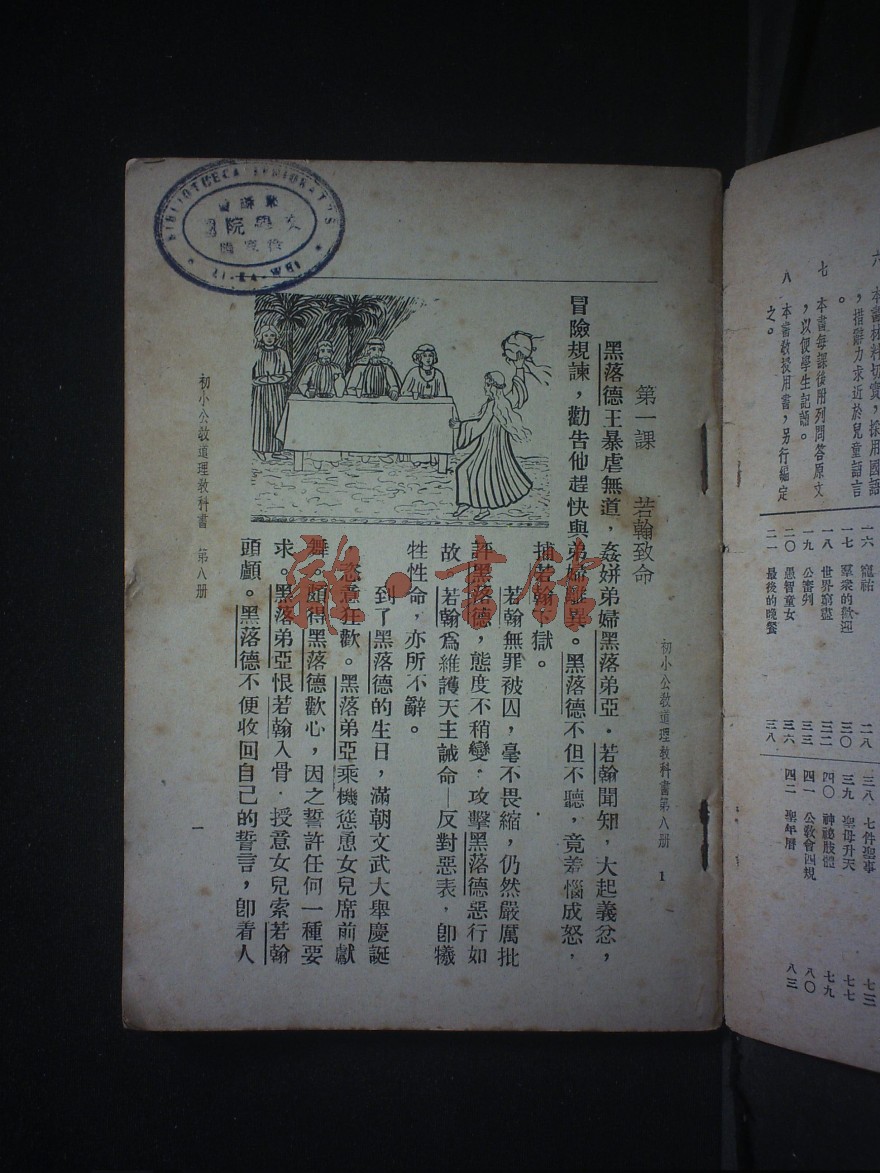 初小公教道理教科書第八册 1
第一課 若翰致命
黑落德王暴虐無道，姦姘弟婦黑落弟亞．若翰聞知，大起義忿，
冒險規諫，勸告他趕快與弟婦離異。黑落德不但不聽，竟羞惱成怒，
捕若翰下獄。
若翰無罪被囚，毫不畏縮，仍然嚴厲批
評黑落德，態度不稍變．攻擊黑落德惡行如
故．若翰爲維護天主誡命—反對惡表，卽犧
牲性命，亦所不辭。
到了黑落德的生日，滿朝文武大舉慶誕
，恣意狂歡。黑落弟亞乘機慫恿女兒席前獻
舞。頗得黑落德歡心，因之誓許任何一種要
求。黑落弟亞恨若翰入骨．授意女兒索若翰
頭顱。黑落德不便收回自己的誓言，卽着人
初小公教道理教科書 第八册
一
BIBLIOTHECA
ZI-KA-WEI
院
雜·書館
六 本書材料切實，採用國語
，措辭力求近於兒童語言
。
七 本書每課後附列問答原文
，以便學生記誦。
八 本書教授用書，另行編定
之。
一六 寵祐 二八
一七 羣衆的歡迎 三〇
一八 世界窮盡 三二
一九 公審判 三三
二〇 愚智童女 三六
二一 最後的晚餐 三八
三八 七件聖事 七三
三九 聖母升天 七七
四〇 神祕肢體 七九
四一 公敎會四規 八〇
四二 聖年曆 八三